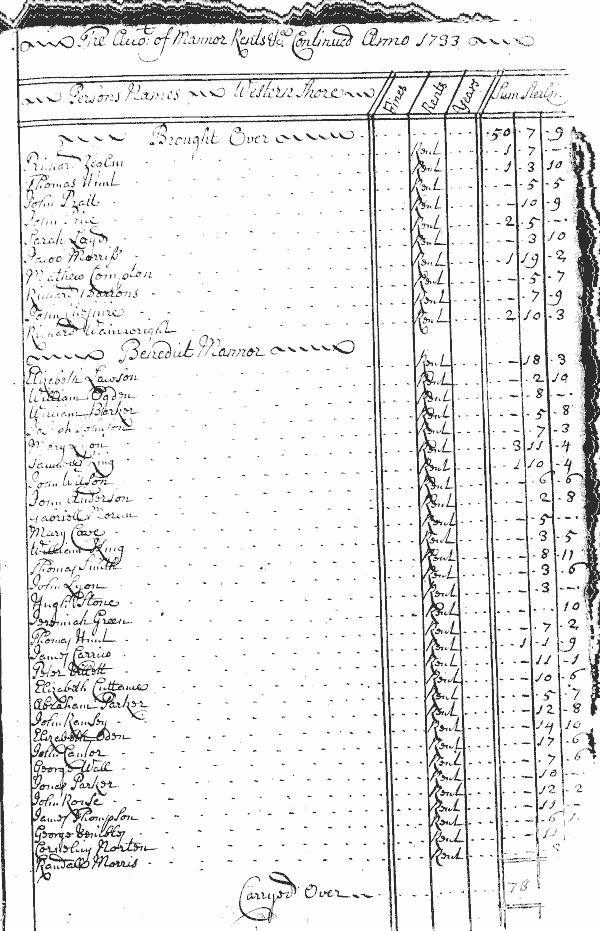 The Acct: of Mannor Rents &c Continued Anno 1733
Persons Names Western Shore Fines Rents Years Sum Sterlg.
Brought Over 50 7 9
Richard Rent 1 7 -
Thomas Hunt Rent 1 3 10
John Pratt Rent - 5 5
John Price Rent - 10 9
Sarah Rent 2 5 -
Jacob Morriss Rent - 3 10
Mathew Compton Rent 1 19 2
Richard Barrons Rent - 5 7
John Rent - 7 9
Richard Wainwright Rent 2 10 3
Benedict Mannor
Elizabeth Lawson Rent - 18 3
William Ogden Rent - 2 10
William Barker Rent - 8 -
Johnson Rent - 5 8
Mary Lyon Rent - 7 3
King Rent 3 11 4
John Wilson Rent 1 10 4
John Anderson Rent - 6 6
Gabriell Moran Rent - 2 8
Mary Cave Rent - 5 -
William King Rent - 3 5
Thomas Smith Rent - 8 11
John Lyon Rent - 3 6
Hugh Stone Rent - 3 -
Jeremiah Green Rent 10
Thomas Hunt Rent - 7 2
James Carrico Rent 1 1 9
Peter Rent - 11 1
Elizabeth Rent - 10 6
Abraham Parker Rent - 5 7
John Ramsey Rent - 12 8
Elizabeth Oden Rent - 14 10
John Cantor Rent - 17 6
George Wall Rent - 7 6
Jonas Parker Rent - 10 -
John Rouse Rent - 12 2
James Thompson Rent - 11 -
George Rent - 6
Cornelius Norten Rent - 11
Randall Morris Rent
Carryed Over 78